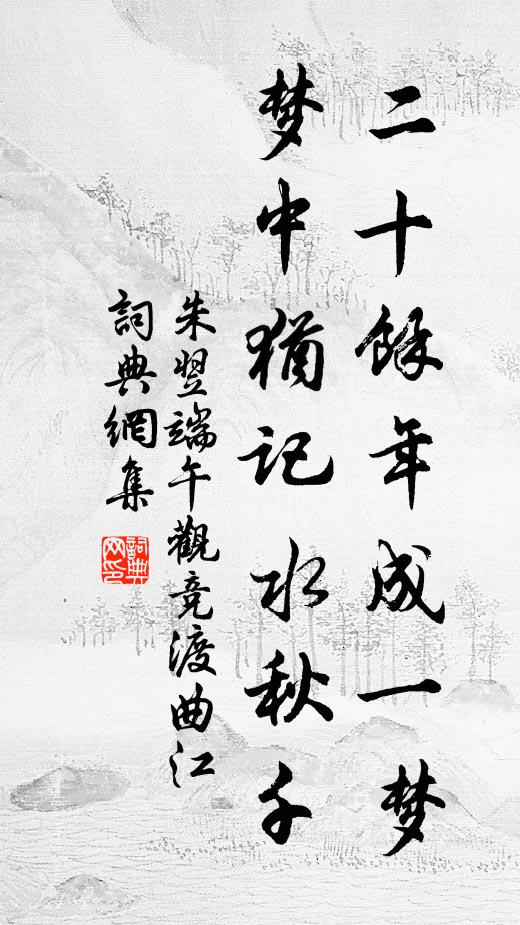 二十餘年成一梦
梦中猶记水秋千
朱翌端午觀竞渡曲江
詞典網集
詞典网印